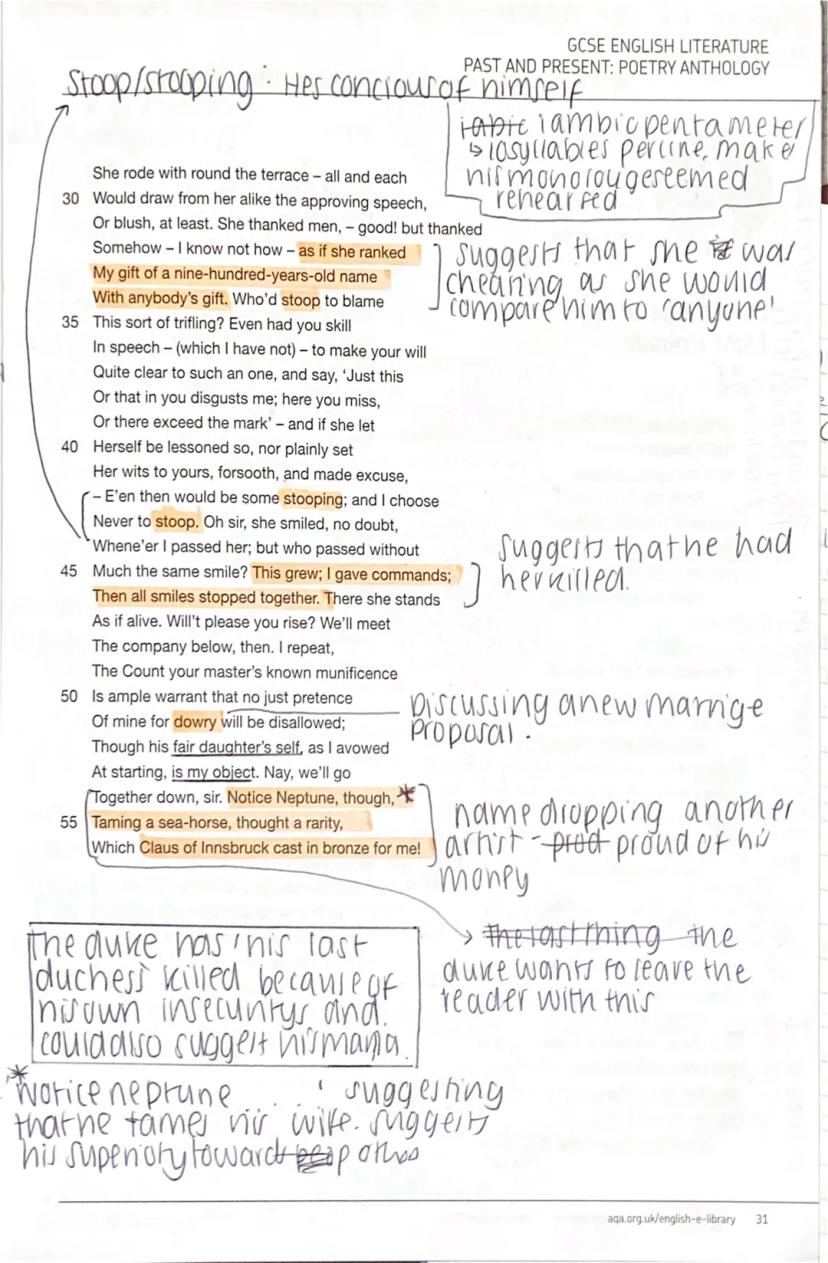 GCSE ENGLISH LITERATURE
PAST AND PRESENT: POETRY ANTHOLOGY
Stoop/stooping: Hes concious of himself
iabic iambic pentameter
↳ 10syllables per line, make
his monolouge seemed
rehearsed
She rode with round the terrace – all and each
30 Would draw from her alike the approving speech,
Or blush, at least. She thanked men, – good! but thanked
Somehow – I know not how – as if she ranked
My gift of a nine-hundred-years-old name
With anybody's gift. Who'd stoop to blame
suggests that she was
chearing as she would
compare him to 'anyone'
35 This sort of trifling? Even had you skill
In speech – (which I have not) – to make your will
Quite clear to such an one, and say, 'Just this
Or that in you disgusts me; here you miss,
Or there exceed the mark' – and if she let
40 Herself be lessoned so, nor plainly set
Her wits to yours, forsooth, and made excuse,
– E'en then would be some stooping; and I choose
Never to stoop. Oh sir, she smiled, no doubt,
Whene'er I passed her; but who passed without
45 Much the same smile? This grew; I gave commands;
Then all smiles stopped together. There she stands
suggests that he had
her killed.
As if alive. Will't please you rise? We'll meet
The company below, then. I repeat,
The Count your master's known munificence
50 Is ample warrant that no just pretence
Of mine for dowry will be disallowed;
Discussing a new marrige
proposal.
Though his fair daughter's self, as I avowed
At starting, is my object. Nay, we'll go
Together down, sir. Notice Neptune, though,*
55 Taming a sea-horse, thought a rarity,
Which Claus of Innsbruck cast in bronze for me!
name dropping another
artist - prod proud of his
money
The last thing the
duke wants to leave the
reader with this
The duke has 'his last
duchess' killed because of
his own insecuritys and
could also suggest his mania.
*
Notice neptune . . ' suggesting
that he tames his wife. suggests
his superioty toward others
aqa.org.uk/english-e-library 31